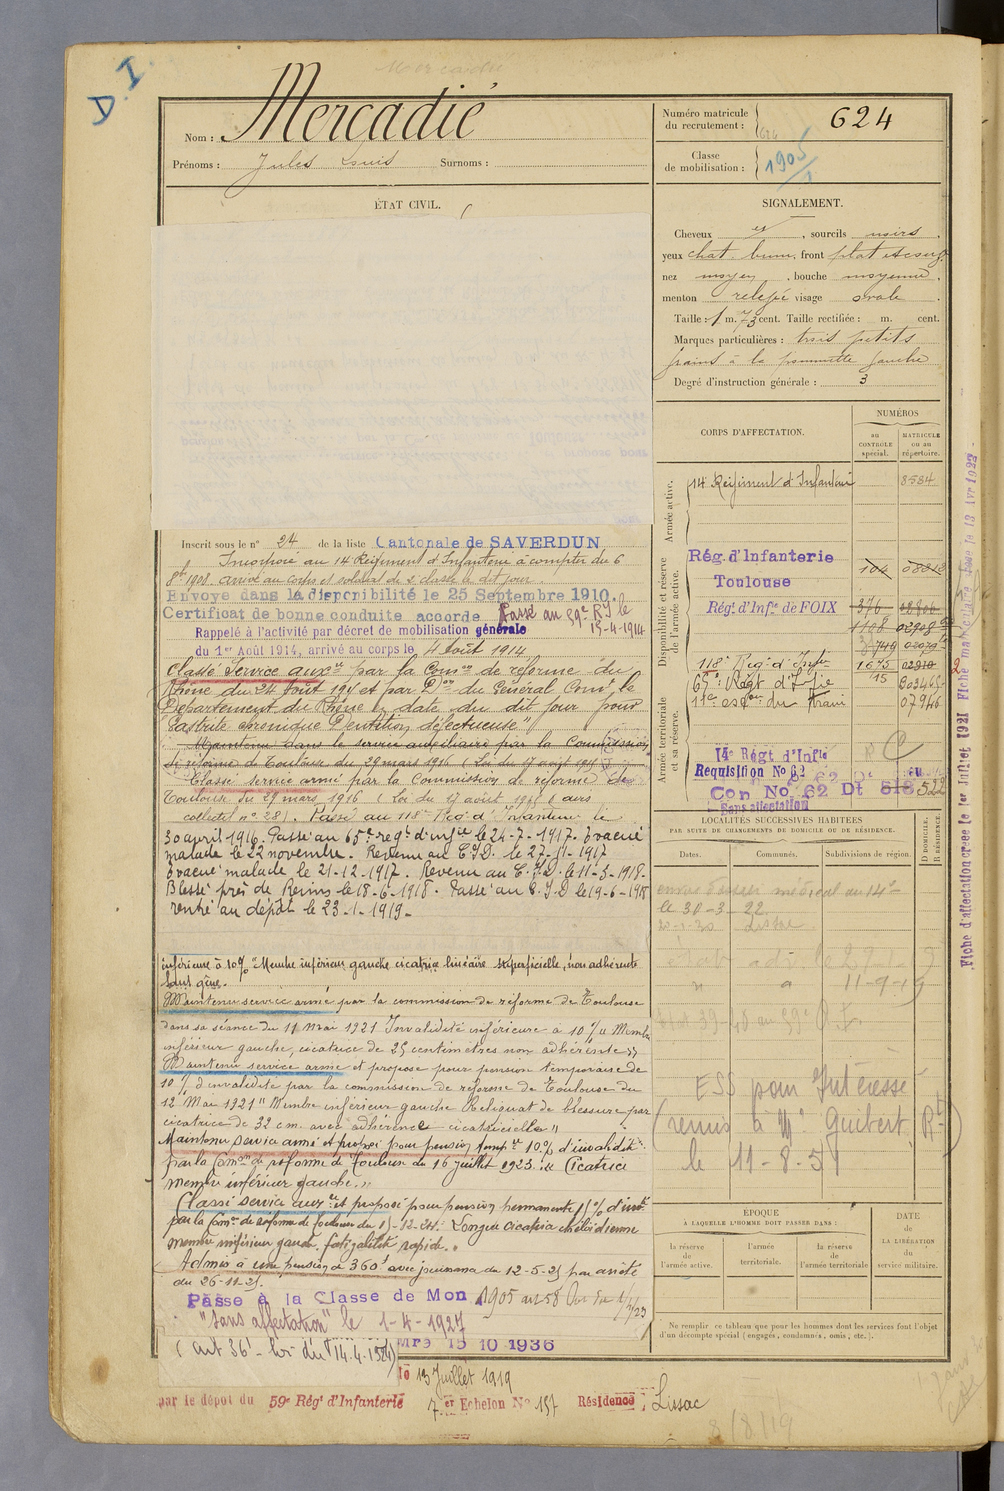 D.I.
Mercadié
Nom : Mercadié
Prénoms : Jules Louis Surnoms :
Numéro matricule du recrutement : 624
Classe de mobilisation : 1905/1
ÉTAT CIVIL.
SIGNALEMENT.
Cheveux , sourcils noirs
yeux chat. brun, front plat
nez moyen , bouche moyenne.
menton relepé visage ovale
Taille : 1 m. 73 cent. Taille rectifiée : m. cent.
Marques particulières : trois petits
grains à la pommette gauche
Degré d'instruction générale : 3
CORPS D'AFFECTATION.
NUMÉROS
au CONTROLE spécial.
MATRICULE ou au répertoire.
Armée active.
14e Régiment d'Infanterie 8584
Disponibilité et réserve de l'armée active.
Rég. d'Infanterie
Toulouse 104
Régt d'Infie de FOIX 376
1108 02908
749
118e Reg. d'Infie 1675 02910
65e Régt d'Ifie 15
du train 07946
Armée territoriale et sa réserve.
14e Régt d'Infie
Requisition No 62
Con No 62 Dt 518 522
Sans affectation
Inscrit sous le n° 24 de la liste Cantonale de SAVERDUN
Incorporé au 14e Régiment d'Infanterie à compter du 6
8bre 1908. arrivé au corps et soldat de 2e classe le dit jour.
Envoye dans la disponibilité le 25 Septembre 1910.
Certificat de bonne conduite accorde Passé au 59e RI le
15-4-1914
Rappelé à l'activité par décret de mobilisation générale
du 1er Août 1914, arrivé au corps le 4 Août 1914
Classé Service auxre par la Comon de réforme du
Rhône du 24 Août 191 et par Don du Général Comt le
Département du Rhône en date du dit jour pour
"Gastrite chronique Dentition défectueuse"
Maintenu dans le service auxiliaire par la Commission
de réforme de Toulouse du 29 mars 1916 (Loi du 17 août 1915
Classé service armé par la Commission de réforme de
Toulouse du 29 mars 1916 (Loi du 17 août 1915 avis
collectif n° 28). Passé au 118e Régt d'Infanterie le
30 avril 1916. Passé au 65e reg. d'infie le 24-7-1917. Evacué
malade le 22 novembre. Revenu au C.I.D. le 27-11-1917
évacué malade le 21-12-1917. Revenu au C.I.D. le 11-3-1918.
Blessé près de Reims le 18-6-1918. Passé au C.I.D le 19-6-1918
rentré au dépôt le 23-1-1919.
inférieure à 10% "Membre inférieur gauche cicatrice linéaire superficielle, non adhérente
sans gêne.
Maintenu service armé par la commission de réforme de Toulouse
dans sa séance du 11 mai 1921 Invalidité inférieure à 10% "Membre
inférieur gauche, cicatrice de 25 centimètres non adhérente"
Maintenu service armé et proposé pour pension temporaire de
10% d'invalidité par la commission de réforme de Toulouse du
12 Mai 1921 "Membre inférieur gauche Reliquat de blessure par
cicatrice de 32 cm. avec adhérence cicatricielle"
Maintenu service armé et proposé pour pension tempre 10% d'invalidité
par la Comon de réforme de Toulouse du 16 juillet 1923. "Cicatrice
membre inférieur gauche."
Classé service auxre et proposé pour pension permanente 15% d'invté
par la Comon de réforme de Toulouse du 15-12-24: Longue cicatrice chéloïdienne
membre inférieur gauche. fatigabilité rapide."
Admis à une pension de 360f avec jouissance du 12-5-25 par arrêté
du 26-11-25.
Passé à la Classe de Mon 1905 art 58
"Sans affectation" le 1-4-1927
(art 36 - loi du 14.4.1924)
15 10 1936
le 13 Juillet 1919
par le dépôt du 59e Régt d'Infanterie 7er Echelon No 157 Résidence : Lissac
8/8/19
LOCALITÉS SUCCESSIVES HABITÉES
PAR SUITE DE CHANGEMENTS DE DOMICILE OU DE RÉSIDENCE.
D DOMICILE. R RÉSIDENCE.
Dates. Communes. Subdivisions de région.
dossier médical au 14e
le 30-3-22
20-1-20 Lissac
11-9-19
ESS pour Intéressé
(remis à M. Guibert Rt)
le 11-8-51
ÉPOQUE
À LAQUELLE L'HOMME DOIT PASSER DANS :
DATE DE LA LIBÉRATION du service militaire.
la réserve de l'armée active.
l'armée territoriale.
la réserve de l'armée territoriale
Ne remplir ce tableau que pour les hommes dont les services font l'objet
d'un décompte spécial (engagés, condamnés, omis, etc.).
Fiche d'affectation créée le 1er Juillet 1921 Fiche matriculaire le 13 Avr 1922